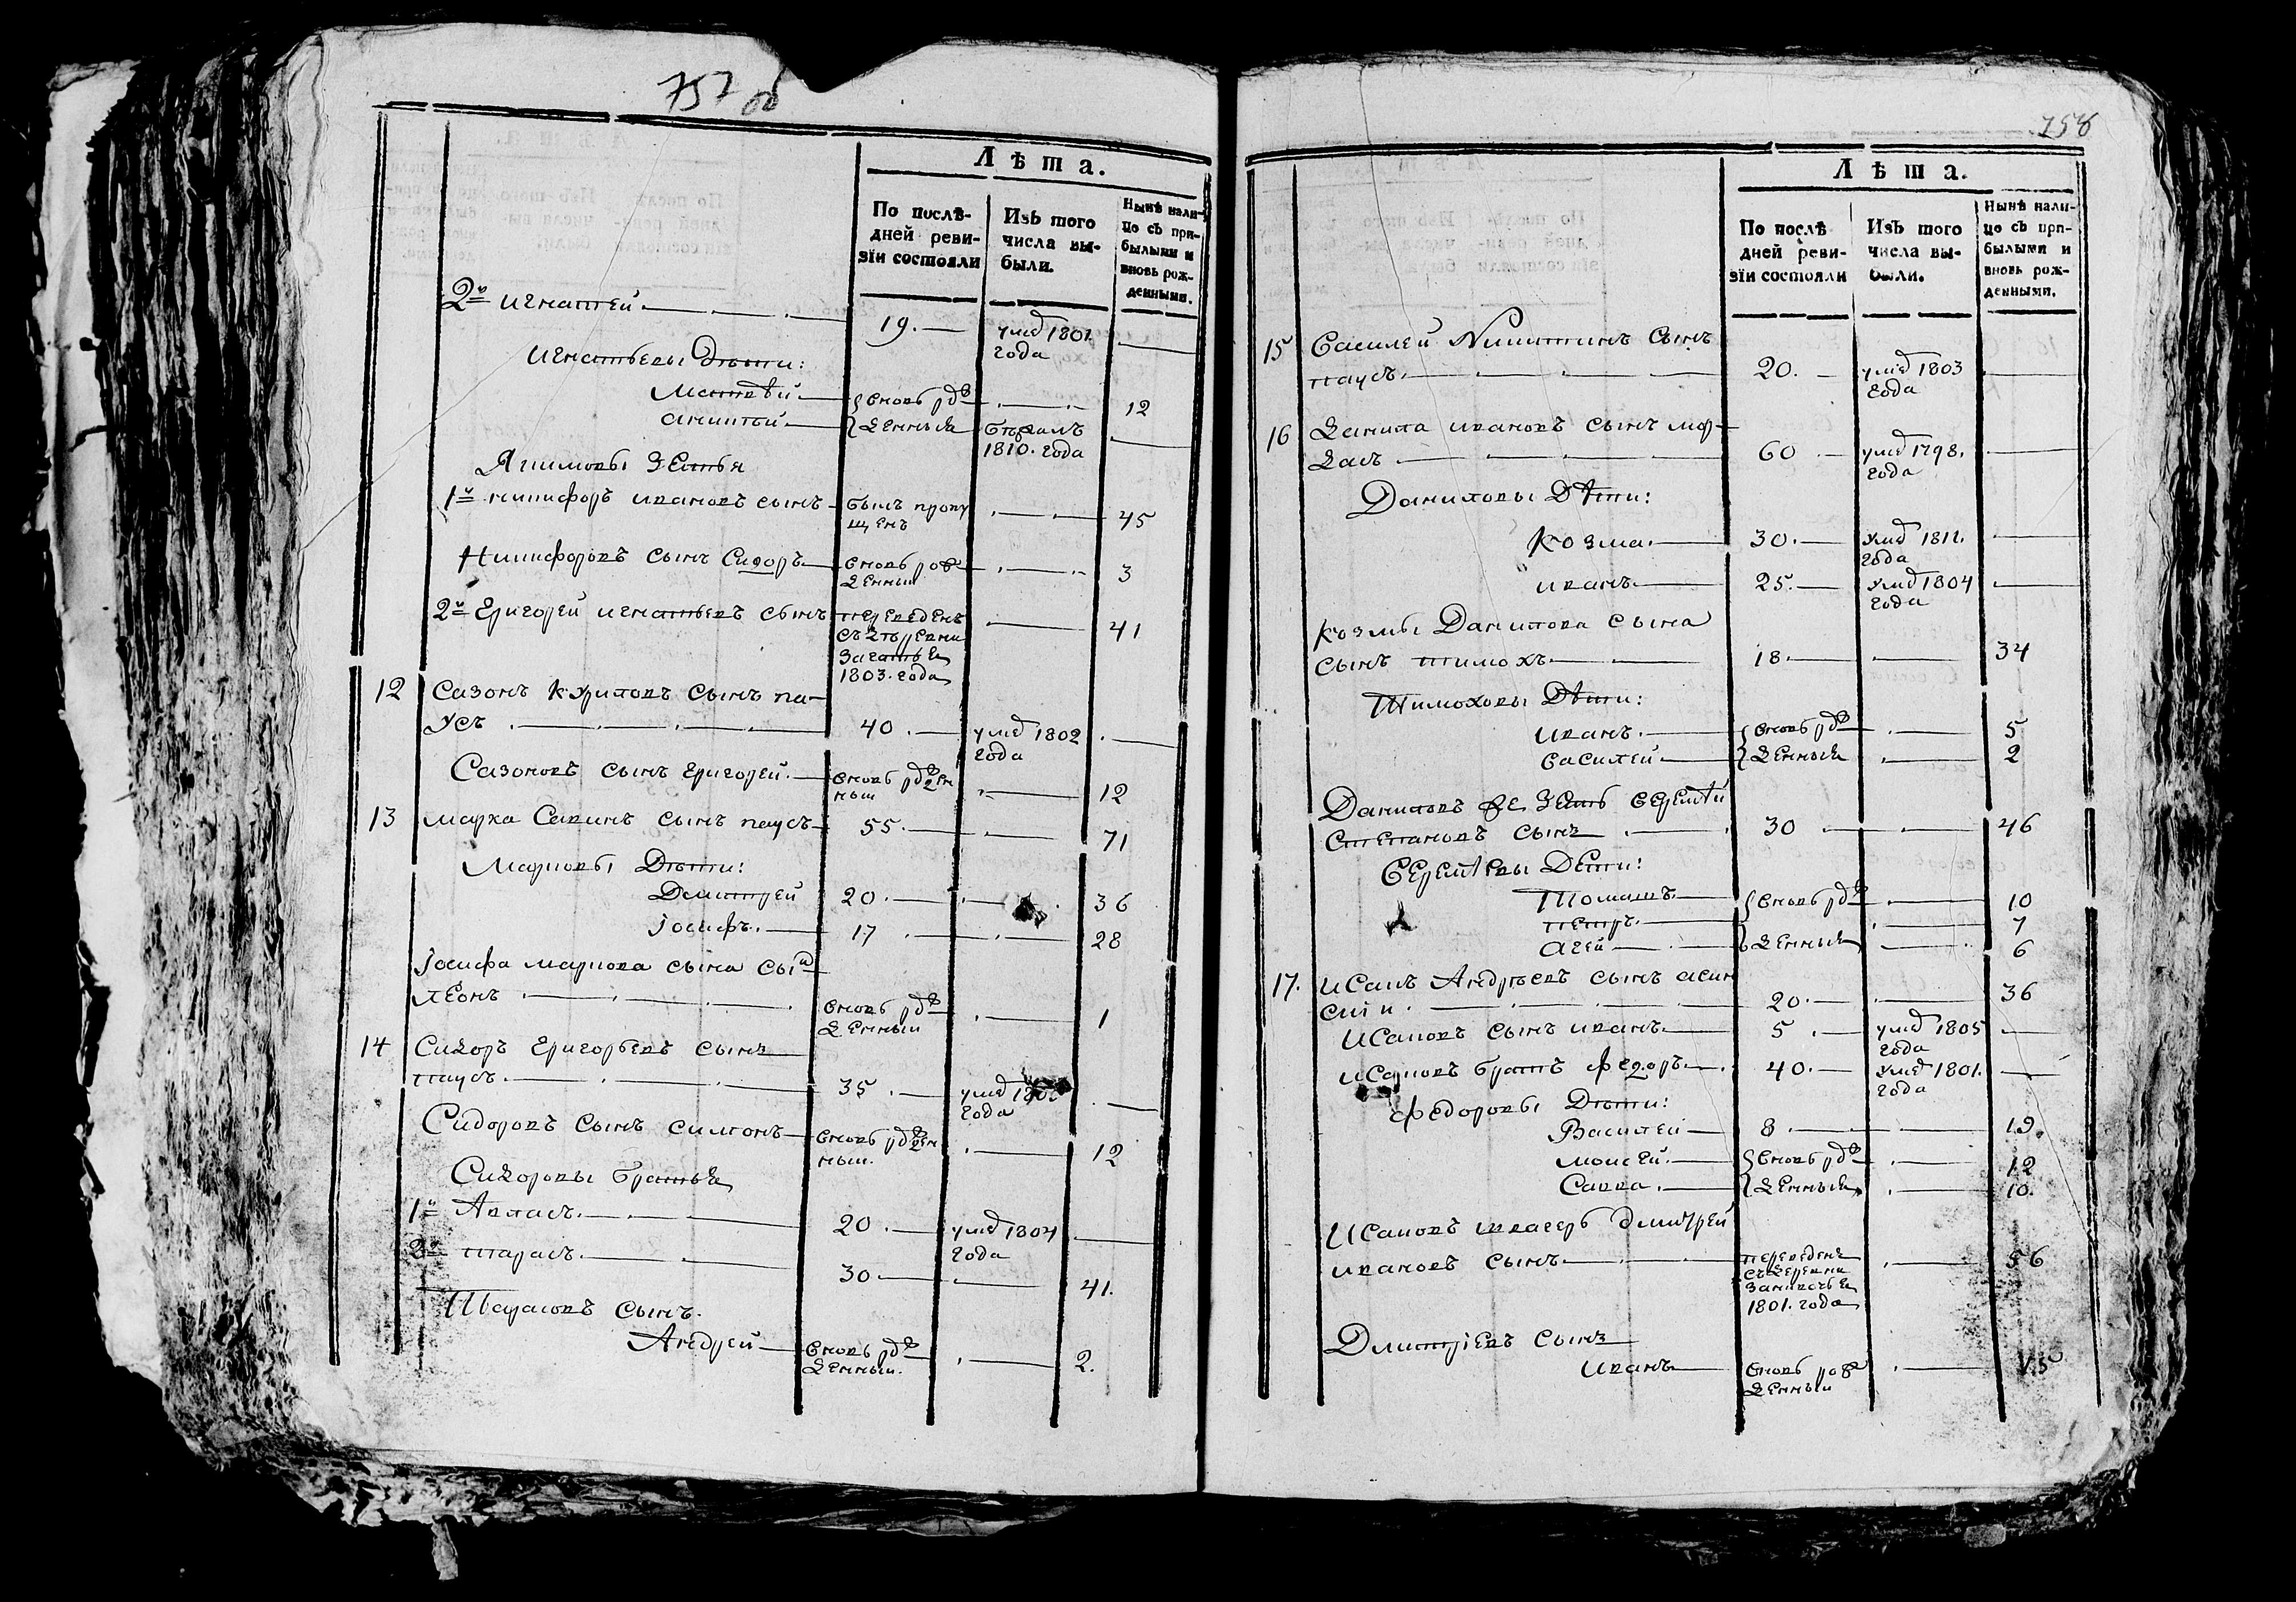 757 об
Лѣта.
По послѣ-
дней реви-
зіи состояли
Изъ того
числа вы-
были.
Нынѣ нали-
цо съ при-
былыми и
вновь рож-
денными.
2й Игнатей 19. умѣ 1801.
года
Игнатьевы дѣти:
Матвѣй вновь рож 12
Аникей денныя
1810. года
Якимовы зятья
1й Никифоръ Ивановъ сынъ былъ пропу 45
щенъ
Никифоровъ сынъ Сидоръ вновь рож 3
денный
2й Григорей Игнатьевъ сынъ переведенъ 41
съ деревни
1803. года
12 Сазонъ Кириловъ сынъ па-
усъ 40 умѣ 1802
года
Сазоновъ сынъ Григорей вновь рожден 12
ный
13 Марка Савинъ сынъ паусъ 55. 71
Марковы дѣти:
Дмитрей 20 36
Іосифъ. 17 28
Іосифа Маркова сына сынъ
Леонъ вновь рож 1
денный
14 Сидоръ Григорьевъ сынъ
паусъ. 35 умѣ
года
Сидоровъ сынъ Симонъ вновь рожден 12
ный.
Сидоровы братья
1й Авласъ. 20 умѣ 1804
года
2й Тарасъ. 30 41.
Тарасовъ сынъ.
Андрей вновь рож 2.
денный.
758
Лѣта.
По послѣ
дней реви-
зіи состояли
Изъ того
числа вы-
были.
Нынѣ нали-
цо съ при-
былыми и
вновь рож-
денными.
15 Василей Никитинъ сынъ
паусъ. 20. умѣ 1803
года
16 Данила Ивановъ сынъ мор-
дасъ 60 умѣ 1798.
года
Даниловы дѣти:
Козма. 30. умѣ 1811.
года
Иванъ 25. умѣ 1804
года
Козмы Данилова сына
сынъ Тимохъ 18 34
Тимоховы дѣти:
Иванъ. вновь рож 5
Василей денныя 2
Даниловъ же зять Сергѣй
Степановъ сынъ 30 46
Сергѣевы дети:
Томашъ вновь рож 10
Петръ 7
Агей денныя 6
17. Исакъ Андрѣевъ сынъ
20. 36
Исаковъ сынъ Иванъ 5 умѣ 1805
года
Исаковъ братъ Федоръ 40. умѣ 1801.
года
Федоровы дѣти:
Василей 8 19.
Моисей. вновь рож 12
Савва. денныя 10.
Исаковъ швагеръ Дмитрей
Ивановъ сынъ переведенъ 56
съ деревни
1801. года
Дмитріевъ сынъ
Иванъ вновь рож
денный